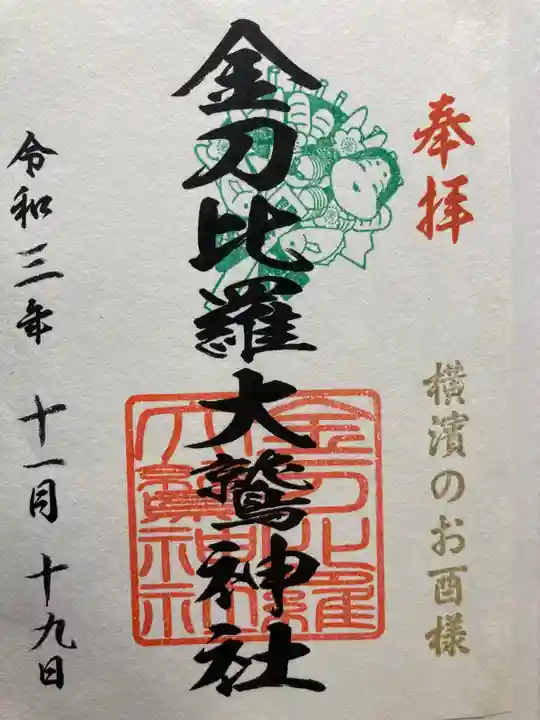 奉拝
横濱のお酉様
金刀比羅大鷲神社
金刀比羅
大鷲神社
令和三年 十一月 十九日